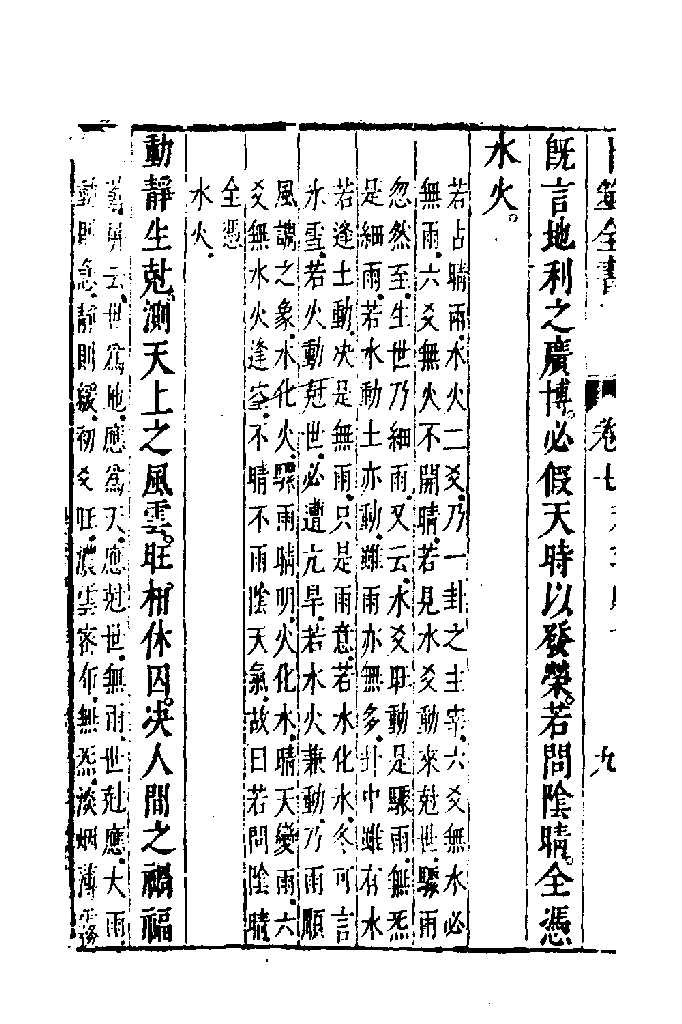 卜筮全書 卷七 九
旣言地利之廣博。必假天時以發榮。若問陰晴。全憑
水火。
若占晴雨。水火二爻。乃一卦之主宰。六爻無水必
無雨。六爻無火不開晴。若見水爻動來尅世。驟雨
忽然至。生世乃細雨。又云。水爻旺動是驟雨。無炁
是細雨。若水動土亦動。雖雨亦無多。卦中雖有水
若逢土動。决是無雨。只是雨意。若水化水。冬可言
氷雪。若火動尅世。必遭亢旱。若水火兼動。乃雨順
風調之象。水化火。驟雨晴明。火化水。晴天變雨。六
爻無水火逢空。不晴不雨陰天氣。故曰若問陰晴。
全憑
水火。
動靜生尅。測天上之風雲。旺相休囚。决人間之禍福
云。世爲地。應爲天。應尅世。無雨。世尅應。大雨。
動則急。靜則緩。初爻旺。濃雲密布。無炁。淡烟薄霧